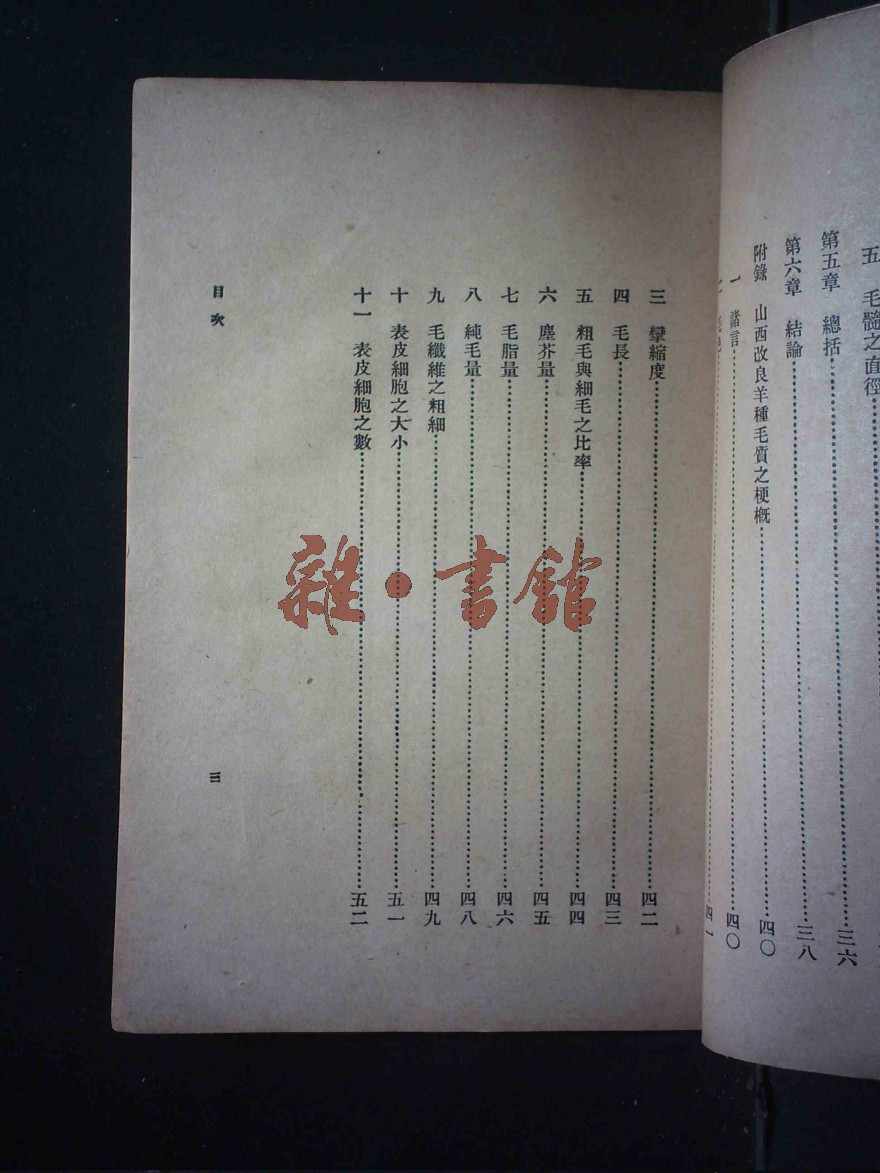 五 毛髓之直徑
第五章 總括 三六
第六章 結論 三八
附錄 山西改良羊種毛質之梗概 四〇
一 諸言 四〇
四一
三 攣縮度 四二
四 毛長 四三
五 粗毛與細毛之比率 四四
六 塵芥量 四五
七 毛脂量 四六
八 純毛量 四八
九 毛纖維之粗細 四九
十 表皮細胞之大小 五一
十一 表皮細胞之數 五二
目次
三
雜·書館